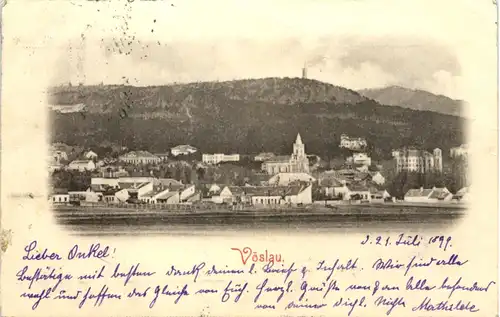 Vöslau.
d. 21. Juli 1899.
Lieber Onkel!
Bestätige mit bestem Dank deinen l. Brief u. Inhalt. Wir sind alle besonders
wohl und hoffen das Gleiche von Euch. Herzl. Grüße von allen
von deiner dich l. Nichte Mathilde